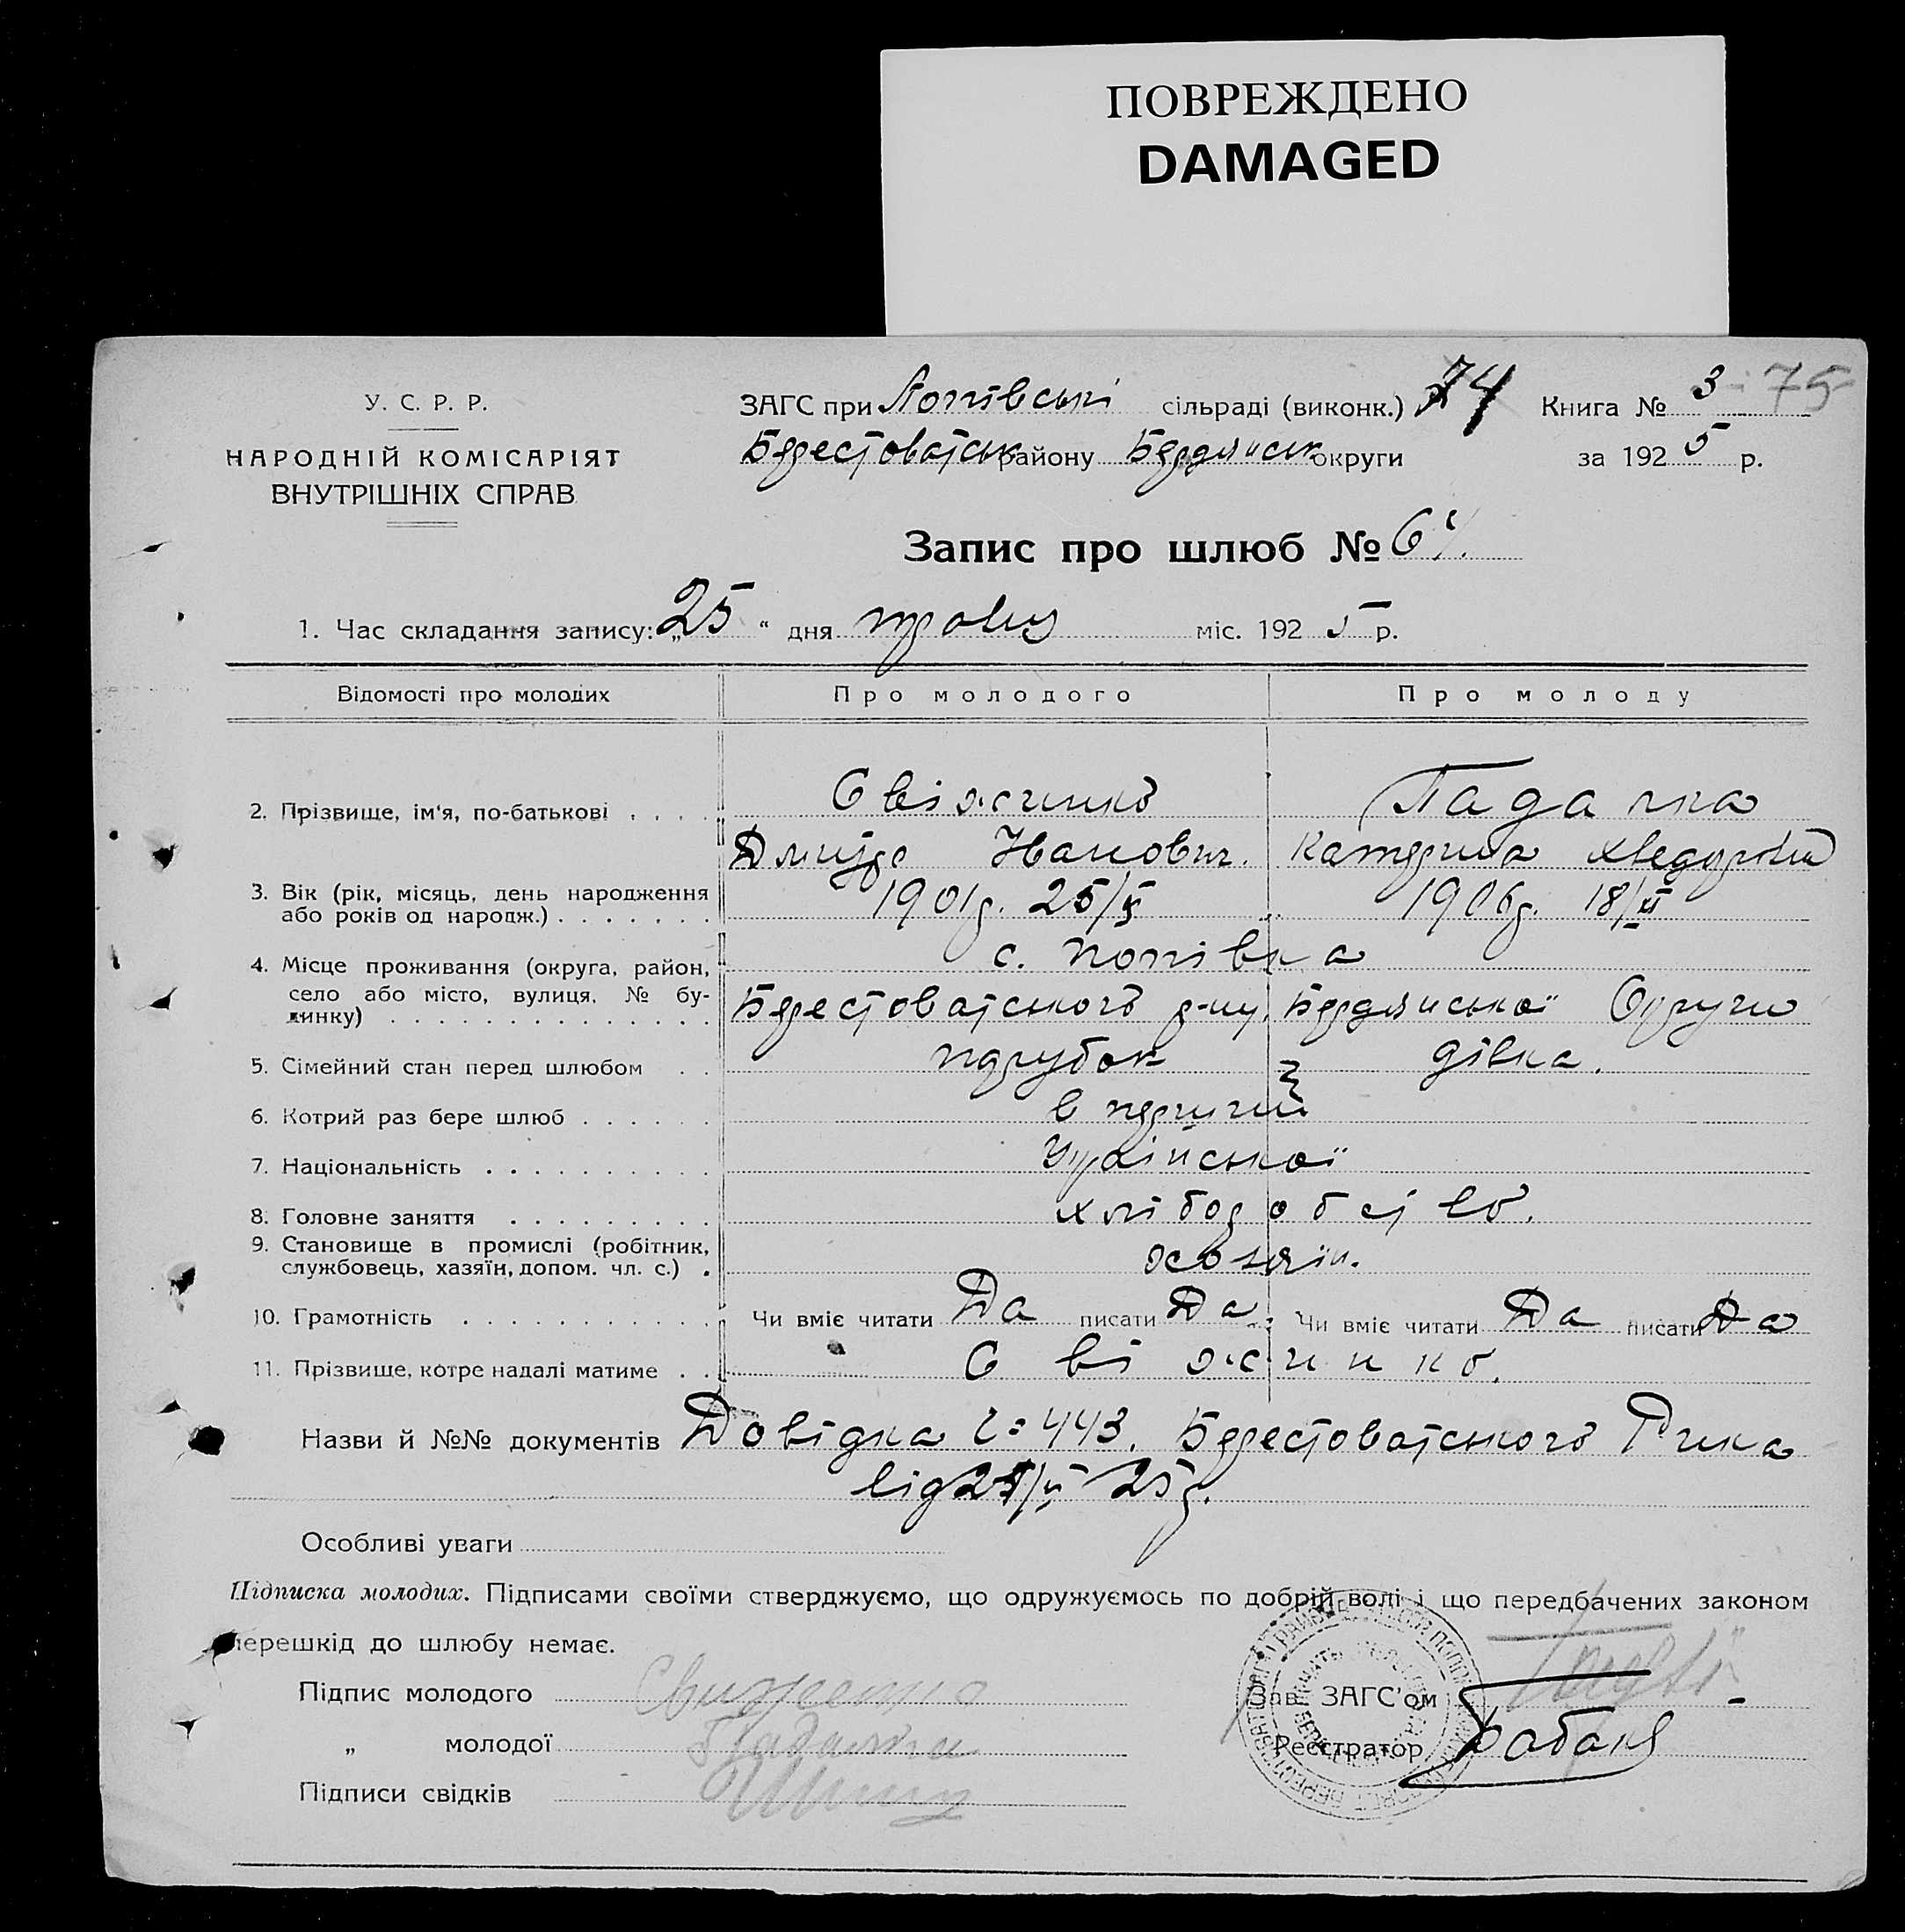 ПОВРЕЖДЕНО
DAMAGED
У. С. Р. Р.
НАРОДНІЙ КОМІСАРІЯТ
ВНУТРІШНІХ СПРАВ
ЗАГС при Попівські сільраді (виконк.) 74 Книга № 3 75
Берестоватськ району Бердянськ округи за 1925 р.
Запис про шлюб №
1. Час складання запису: „25“ дня травня міс. 1925 р.
Відомості про молодих Про молодого Про молоду
2. Прізвище, ім'я, по-батькові . . . . Свіжинко Падалка
Дмитро Іванович. Катерина Хведорівна
3. Вік (рік, місяць, день народження
або років од народж.) . . . . . . . 1901р. 1906р.
4. Місце проживання (округа, район, с. Попівка
село або місто, вулиця, № бу-
динку) . . . . . . . . . . . . . . Берестоватського р-ну, Бердянської Округи
5. Сімейний стан перед шлюбом . . парубок дівка.
6. Котрий раз бере шлюб . . . . . . в перший
7. Національність . . . . . . . . . . Української
8. Головне заняття . . . . . . . . . хліборобство.
9. Становище в промислі (робітник,
службовець, хазяїн, допом. чл. с.) .
10. Грамотність . . . . . . . . . . . Чи вміє читати Да писати Да Чи вміє читати Да писати Да
11. Прізвище, котре надалі матиме . . Свіжинко.
Назви й №№ документів Довідка 443. Берестоватського Рика
від 25р.
Особливі уваги
Підписка молодих. Підписами своїми стверджуємо, що одружуємось по добрій волі і що передбачених законом
перешкід до шлюбу немає.
Підпис молодого
„ молодої Падалка
Підписи свідків
Зав. ЗАГС'ом
Реєстратор